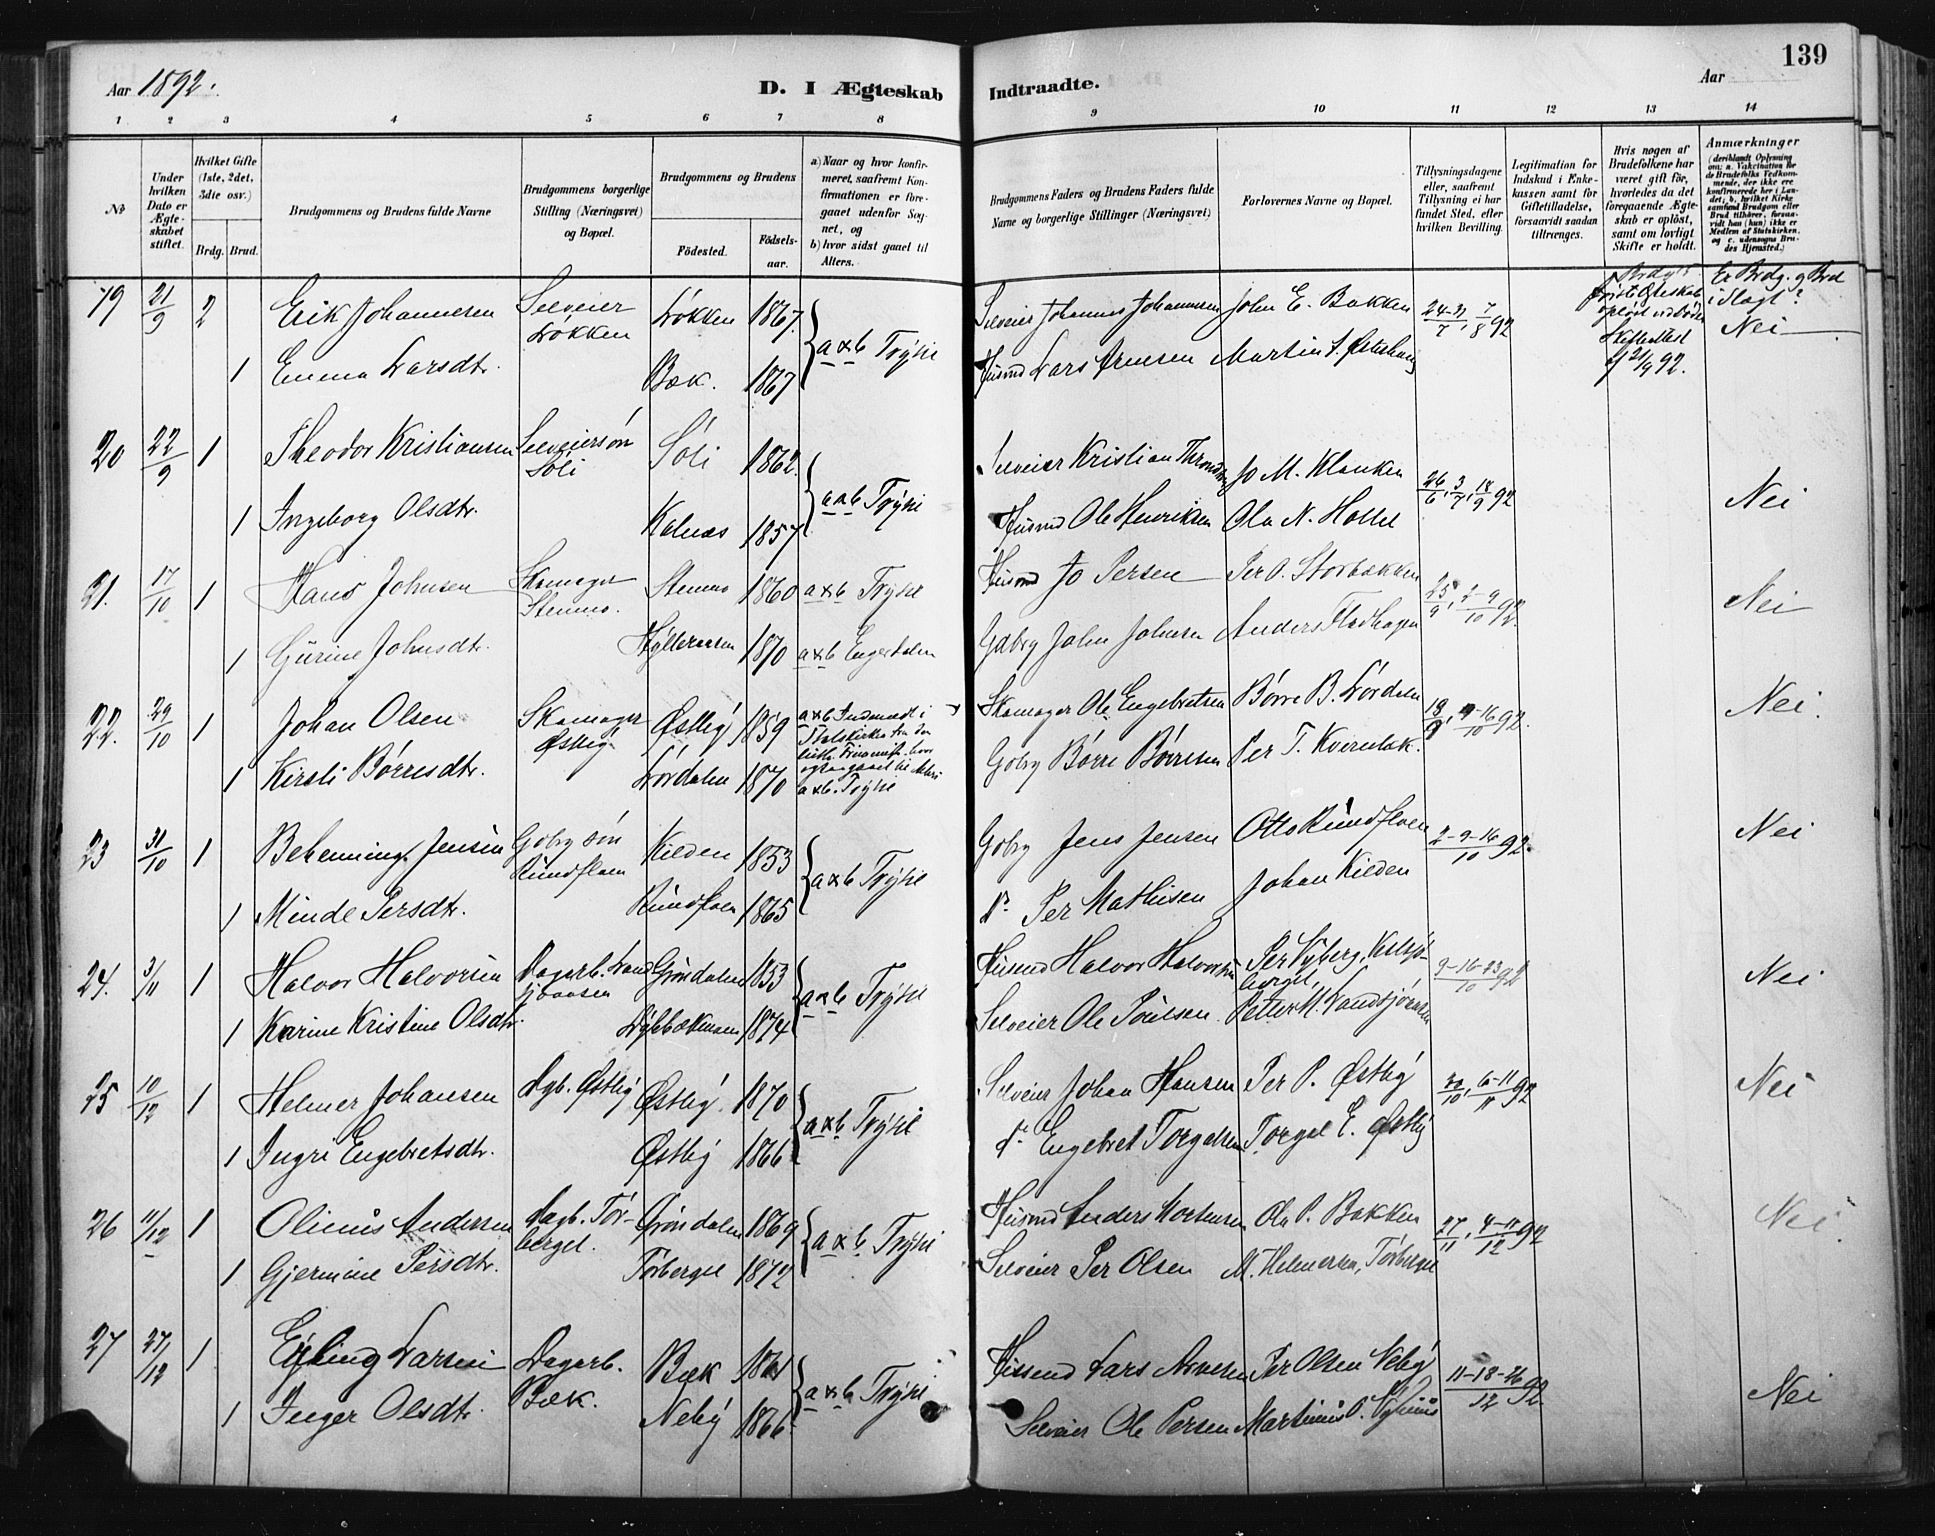 Aar 1892.
D. I Ægteskab Indtraadte.
Aar
139
1 2 3 4 5 6 7 8 9 10 11 12 13 14
No
Under hvilken Dato er Ægteskabet stiftet.
Hvilket Gifte (1ste, 2det, 3die osv.)
Brdg. Brud.
Brudgommens og Brudens fulde Navne
Brudgommens borgerlige Stilling (Næringsvei) og Bopæl.
Brudgommens og Brudens
Födested.
Födselsaar.
a) Naar og hvor konfirmeret, saafremt Konfirmationen er foregaaet udenfor Sognet, og
b) hvor sidst gaaet til Alters.
Brudgommens Faders og Brudens Faders fulde Navne og borgerlige Stillinger (Næringsvei)
Forlovernes Navne og Bopæl.
Tillysningsdagene eller, saafremt Tillysning ei har fundet Sted, efter hvilken Bevilling.
Legitimation for Indskud i Enkekassen samt for Giftetilladelse, forsaavidt saadan tiltrænges.
Hvis nogen af Brudefolkene har været gift för, hvorledes da det foregaaende Ægteskab er oplöst, samt om lovligt Skifte er holdt.
Anmærkninger
19 21/9 2 Erik Johannesen Selveier Løkken Løkken 1867 Selveier Johannes Johannesen John E. Bakken 24-31/7, 7/8 92 Er Brdg. og Brd i Slægt? Nei
1 Emma Larsdtr. Bæk. 1867 a & b Trysil Husmd Lars Arnesen Martin
20 22/9 1 Theodor Kristiansen Selveiersøn Sóli Sóli 1862 Selveier Kristian Jo M. Klanken 26/6, 3/7, 18/9 92 Nei
1 Ingeborg Olsdtr. Kolnæs 1857 a & b Trysil Husmd Ole Henriksen Ola N. Holtet
21. 17/10 1 Hans Johnsen Skomager Stenmo. Stenmo 1860 a & b Trysil Husmd Jo Persen Per O. Storbækken 25/9, 2-9/10 92. Nei
1 Gurine Johnsdtr. Hylleraasen 1870 a & b Engerdalen Gdbrg John Johnsen Anders Flodhagen
22. 29/10 1 Johan Olsen Skomager Østby Østby 1859 a & b Indmeldt i Statskirken fra den Skomager Ole Engebretsen Børre B. Lørdalen 18/9, 9-16/10 92 Nei.
1 Kirsti Børresdtr. Lørdalen 1870 a & b. Trysil Gdbrg Børre Børresen Per T. Kvernbæk.
23 31/10 1 Behenning Jensen Gdbrg søn Rundfloen Kilden 1853 Gdbrg Jens Jensen Otto Rundfloen 2-9-16/10 92. Nei
1 Minde Persdtr. Rundfloen 1865 a & b Trysil do Per Mathisen Johan Kilden
24. 3/11 1 Halvor Halvorsen Dagarb. Landsjøaasen Grøndalen 1853 Husmd Halvor Halvorsen Per Nyberg, 9-16-23/10 92 Nei
1 Karine Kristine Olsdtr. Dybbækmoen 1874 a & b Trysil Selveier Ole Poulsen Petter M. Landsjøaasen
25 10/12 1 Helmer Johansen Dgb. Østby Østby. 1870 Selveier Johan Hansen Per P. Østby 30/10, 6-11/11 92 Nei
1 Ingri Engebretsdtr. Østby 1866 a & b Trysil do Engebret Torgalsen Torgal E. Østby
26 11/12 1 Olinus Andersen Dagb. Törberget. Grøndalen 1869 Husmd Anders Mortensen Ola P. Bakken 27/11, 4-11/12 92 Nei
1 Gjermine Persdtr. Törberget 1872 a & b Trysil Selveier Per Olsen M. Helmersen, Törberget
27 27/12 1 Erling Larsen Dagarb. Bæk. Bæk 1861 Husmd Lars Arnesen Per Olsen Neby 11-18-26/12 92. Nei
1 Inger Olsdtr. Neby 1866 a & b Trysil Selveier Ole Persen Martinus P. Nyhuus